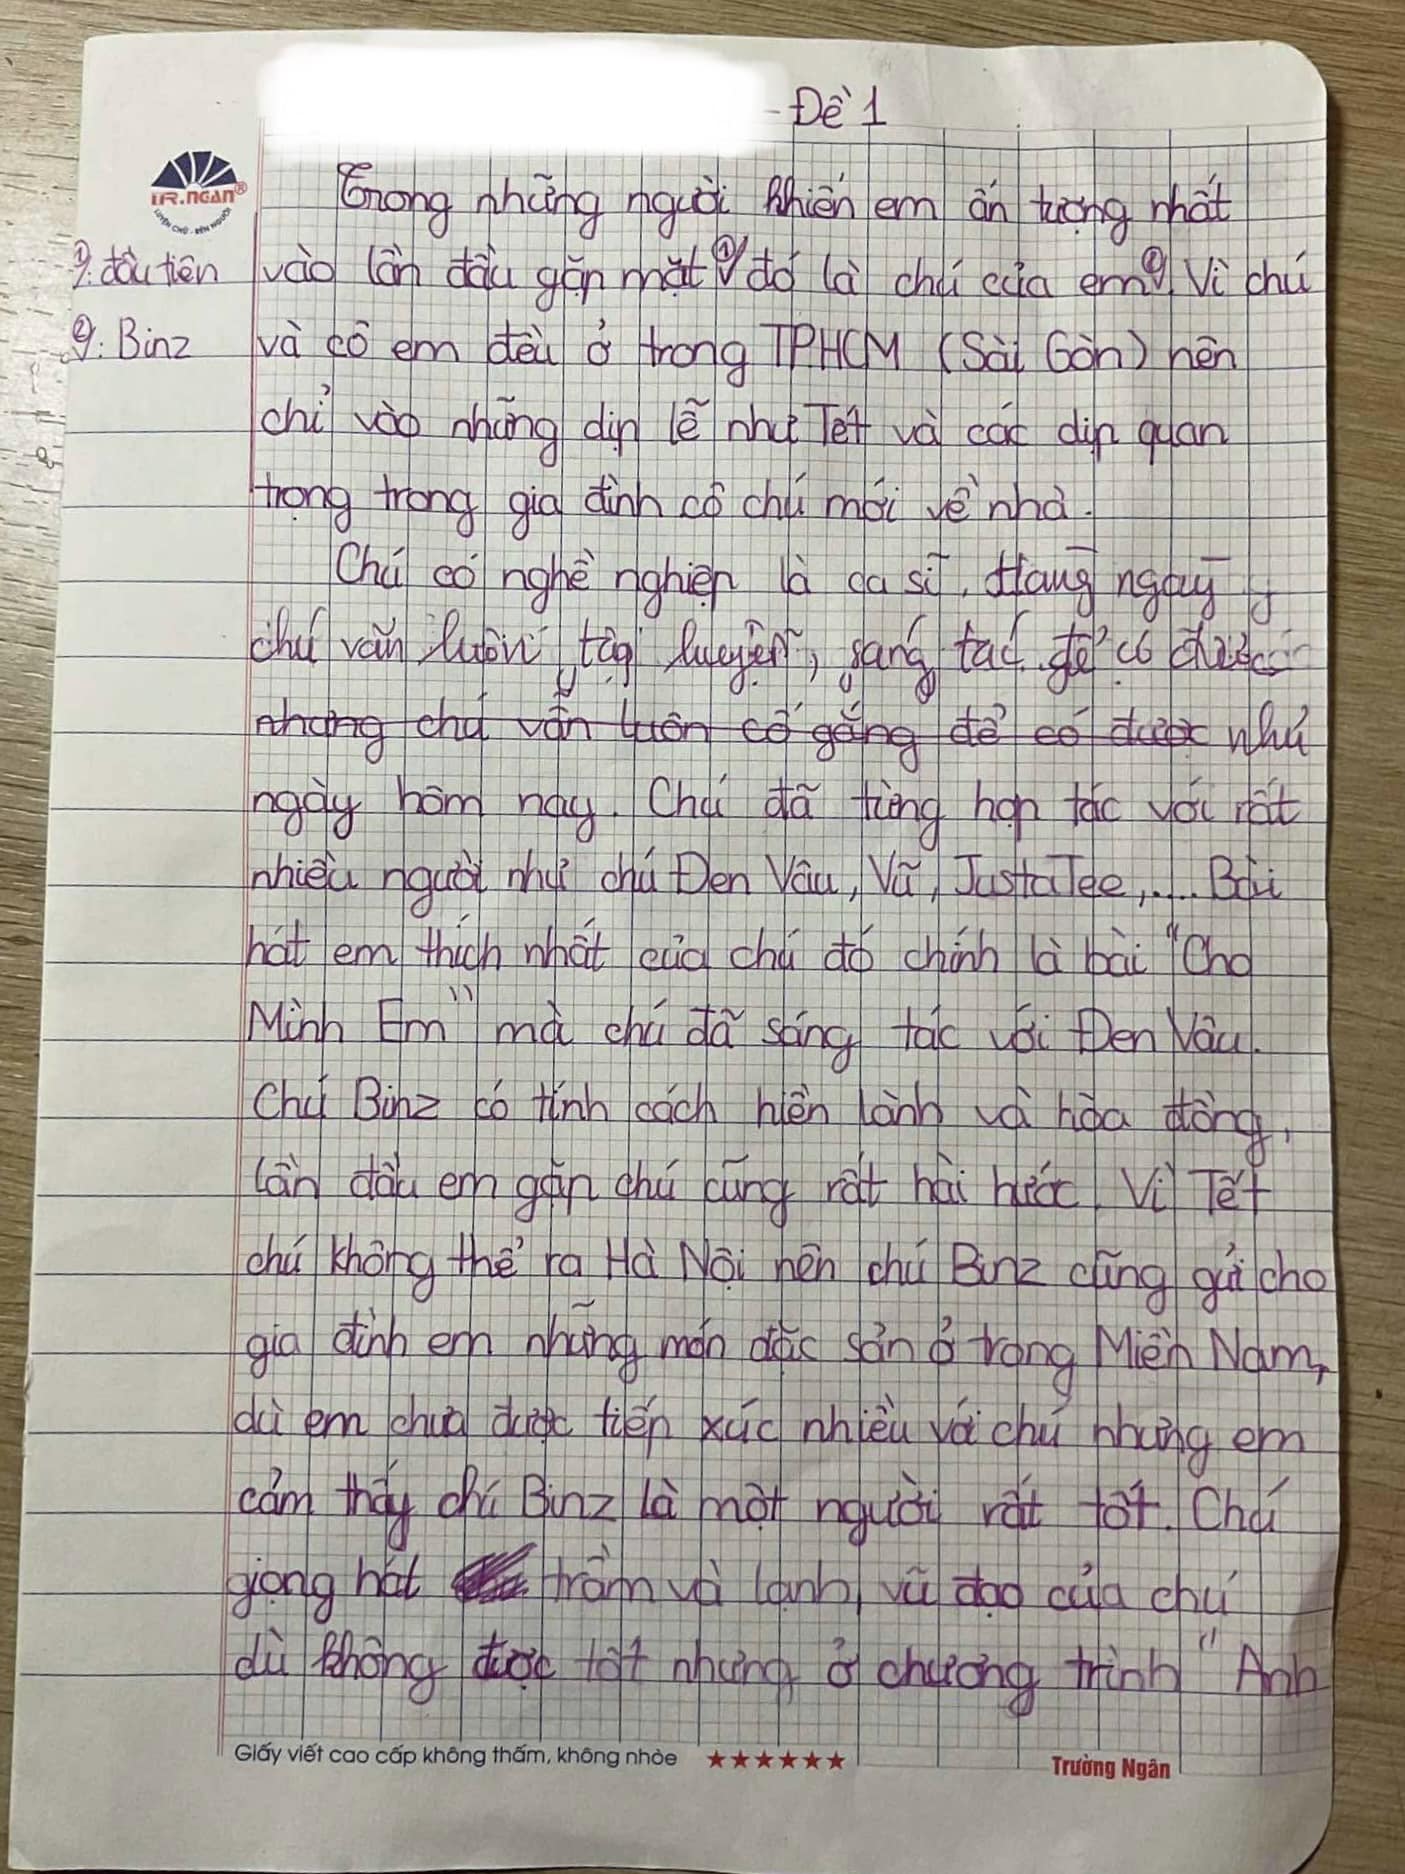 - Đề 1
TR.NGAN®
LUYỆN CHỮ - RÈN NGƯỜI
Trong những người khiến em ấn tượng nhất
①: đầu tiên
vào lần đầu gặp mặt ①√ đó là chú của em ②√. Vì chú
②: Binz
và cô em đều ở trong TPHCM (Sài Gòn) nên
chỉ vào những dịp lễ như Tết và các dịp quan
trọng trong gia đình cô chú mới về nhà.
Chú có nghề nghiệp là ca sĩ. Hàng ngày
chú vẫn luôn tập luyện, sáng tác để có được
nhưng chú vẫn luôn cố gắng để có được như
ngày hôm nay. Chú đã từng hợp tác với rất
nhiều người như chú Đen Vâu, Vũ, JustaTee,.... Bài
hát em thích nhất của chú đó chính là bài "Cho
Mình Em" mà chú đã sáng tác với Đen Vâu.
Chú Binz có tính cách hiền lành và hòa đồng,
lần đầu em gặp chú cũng rất hài hước. Vì Tết
chú không thể ra Hà Nội nên chú Binz cũng gửi cho
gia đình em những món đặc sản ở trong Miền Nam,
dù em chưa được tiếp xúc nhiều với chú nhưng em
cảm thấy chú Binz là một người rất tốt. Chú
giọng hát trầm và lạnh, vũ đạo của chú
dù không được tốt nhưng ở chương trình "Anh
Giấy viết cao cấp không thấm, không nhòe ★★★★★★ Trường Ngân